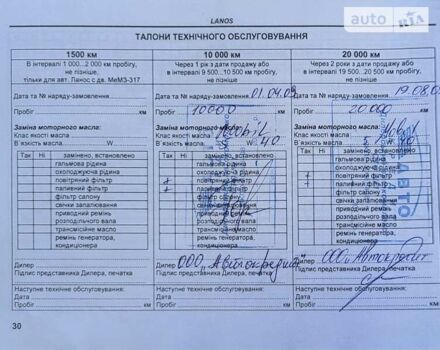 auto RIA
LANOS
ТАЛОНИ ТЕХНІЧНОГО ОБСЛУГОВУВАННЯ
1500 км
В інтервалі 1 000...2 000 км пробігу,
не пізніше,
тільки для авт. Ланос с дв. МеМЗ-317
Дата та № наряду-замовлення
Пробіг км
Заміна моторного масла:
Клас якості масла
В'язкість масла W
Так Ні замінено, встановлено
гальмова рідина
охолоджуюча рідина
повітряний фільтр
паливний фільтр
фильтр салону
свічки запалювання
приводний ремінь
розподільчого вала
трансмісійне масло
ремінь генератора,
кондиционера
Дилер
Підпис представника Дилера, печатка
Наступне технічне обслуговування:
Дата
Пробіг км
10 000 км
Через 1 рік з дати продажу або
в інтервалі 9 500...10 500 км пробігу,
не пізніше
Дата та № наряду-замовлення 01.04.09
Пробіг 10000 км
Заміна моторного масла: Mobil
Клас якості масла
В'язкість масла 5 W 40
Так Ні замінено, встановлено
гальмова рідина
охолоджуюча рідина
повітряний фільтр
паливний фільтр
фильтр салону
свічки запалювання
приводний ремінь
розподільчого вала
трансмісійне масло
ремінь генератора,
кондиционера
Дилер ООО
Підпис представника Дилера, печатка
Наступне технічне обслуговування:
Дата
Пробіг км
20 000 км
Через 2 роки з дати продажу або
в інтервалі 19 500...20 500 км пробігу,
не пізніше
Дата та № наряду-замовлення 19.08.09
Пробіг 20000 км
Заміна моторного масла: Mobil
Клас якості масла
В'язкість масла 5 W 40
Так Ні замінено, встановлено
гальмова рідина
охолоджуюча рідина
повітряний фільтр
паливний фільтр
фильтр салону
свічки запалювання
приводний ремінь
розподільчого вала
трансмісійне масло
ремінь генератора,
кондиционера
АВТО
Дилер ООО
Підпис представника Дилера, печатка
Наступне технічне обслуговування:
Дата
Пробіг км
30